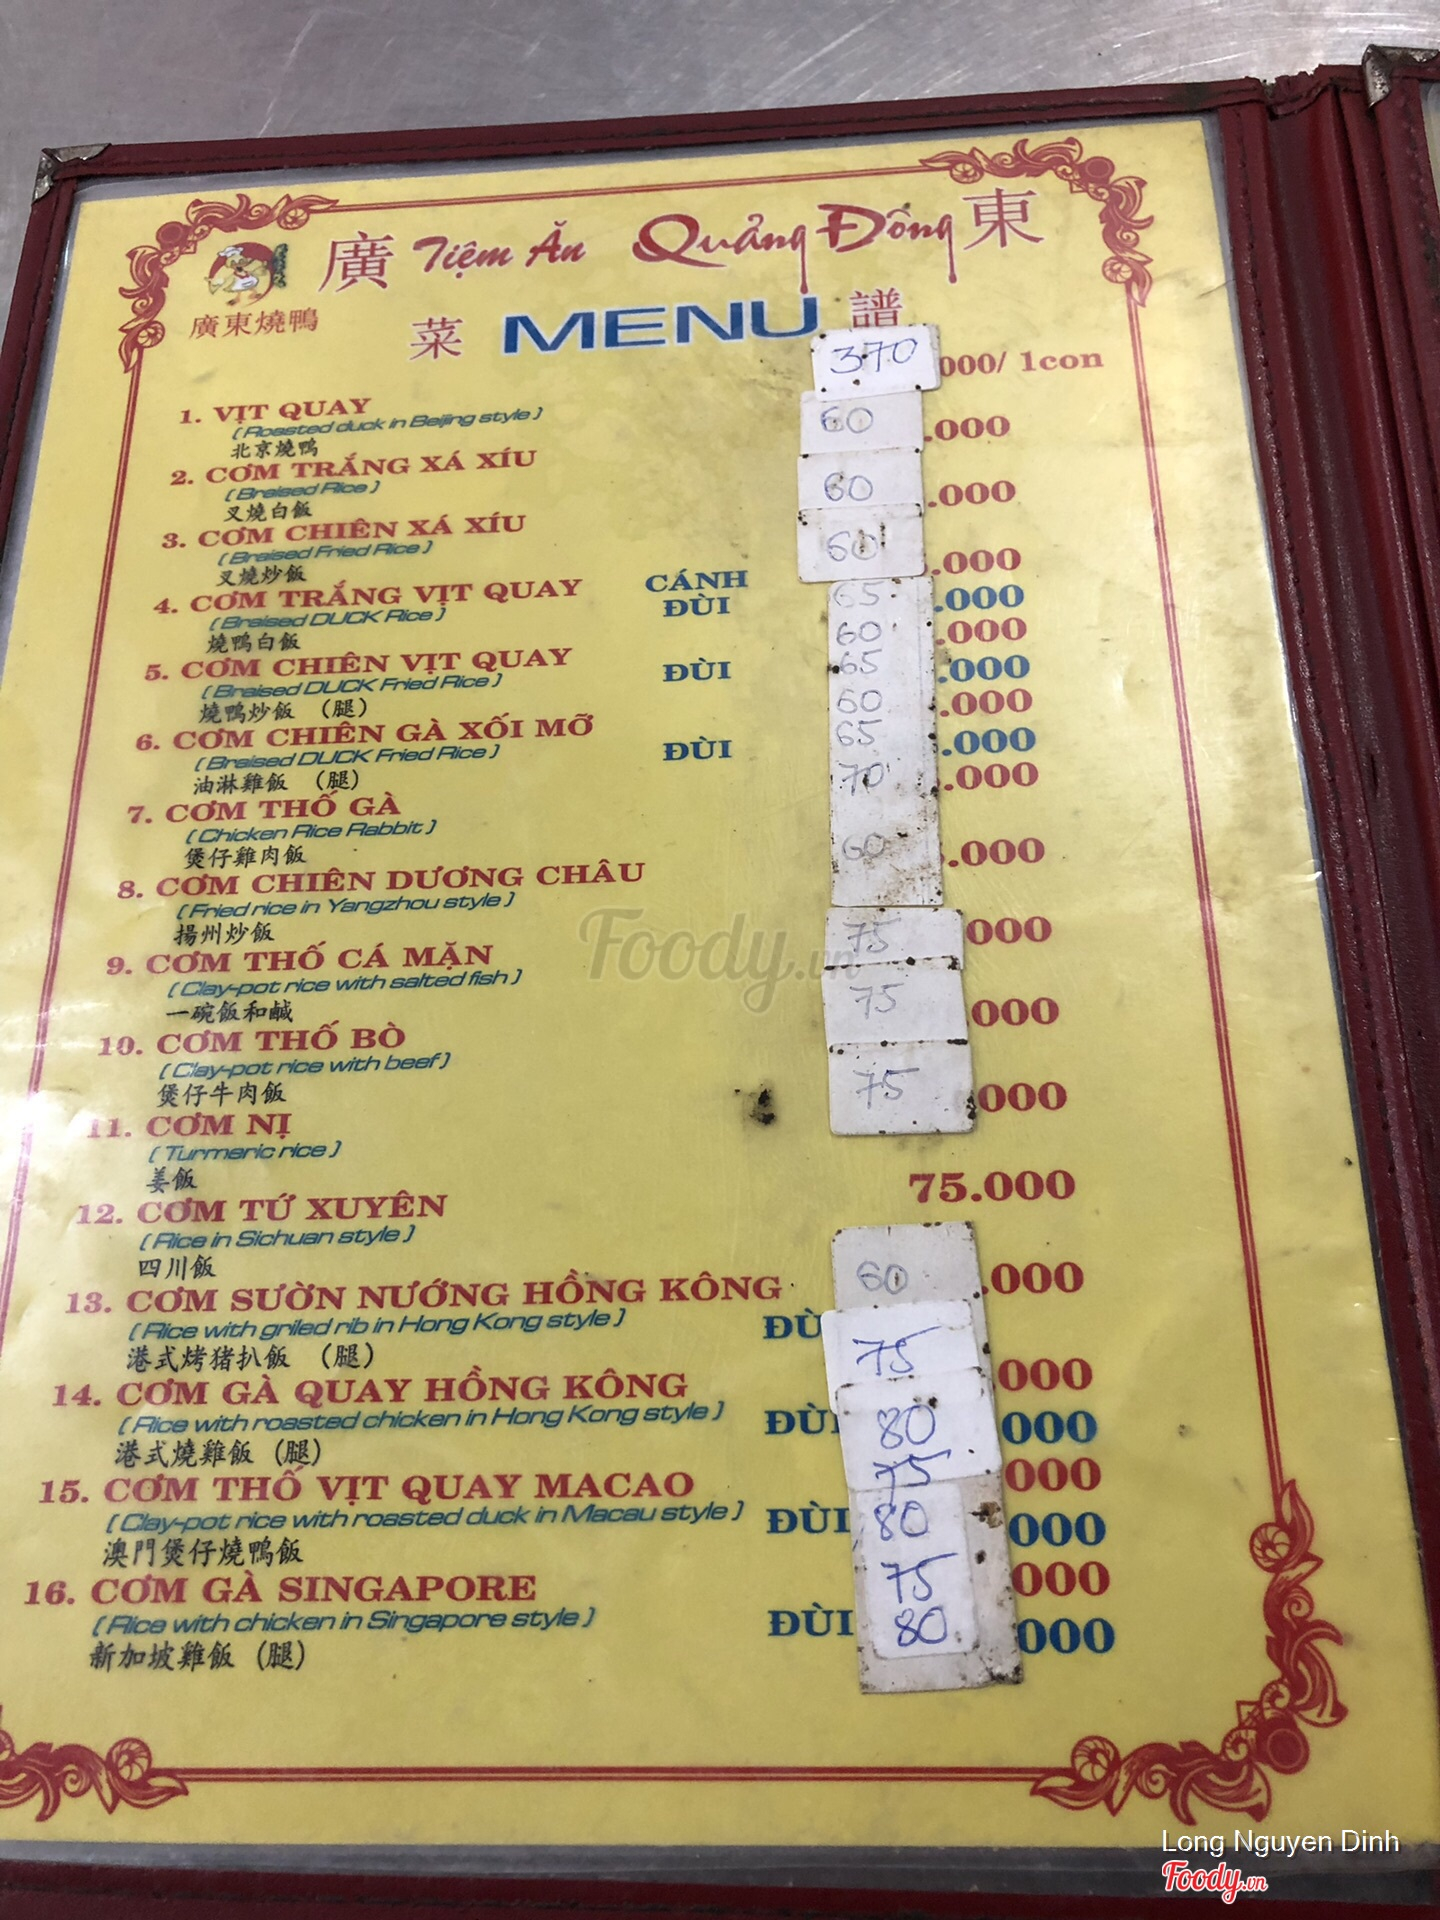 廣 Tiệm Ăn Quảng Đông 東
廣東燒鴨
菜 MENU 譜
370 000/ 1con
1. VỊT QUAY
( Roasted duck in Beijing style )
北京燒鴨
60 .000
2. CƠM TRẮNG XÁ XÍU
( Braised Rice )
叉燒白飯
60 .000
3. CƠM CHIÊN XÁ XÍU
( Braised Fried Rice )
叉燒炒飯
60 .000
4. CƠM TRẮNG VỊT QUAY CÁNH
ĐÙI 65 .000
( Braised DUCK Rice )
燒鴨白飯
60 .000
5. CƠM CHIÊN VỊT QUAY ĐÙI 65 .000
( Braised DUCK Fried Rice )
燒鴨炒飯 (腿)
60 .000
6. CƠM CHIÊN GÀ XỐI MỠ ĐÙI 65 .000
( Braised DUCK Fried Rice )
油淋雞飯 (腿)
70 .000
7. CƠM THỐ GÀ
( Chicken Rice Rabbit )
煲仔雞肉飯
60 .000
8. CƠM CHIÊN DƯƠNG CHÂU
( Fried rice in Yangzhou style )
揚州炒飯
75 000
9. CƠM THỐ CÁ MẶN
( Clay-pot rice with salted fish )
一碗飯和鹹
75 000
10. CƠM THỐ BÒ
( Clay-pot rice with beef )
煲仔牛肉飯
75 000
11. CƠM NỊ
( Turmeric rice )
姜飯
75.000
12. CƠM TỨ XUYÊN
( Rice in Sichuan style )
四川飯
60 .000
13. CƠM SƯỜN NƯỚNG HỒNG KÔNG
( Rice with griled rib in Hong Kong style ) ĐÙ
港式烤猪扒飯 (腿)
75 000
14. CƠM GÀ QUAY HỒNG KÔNG
( Rice with roasted chicken in Hong Kong style ) ĐÙI 80 000
港式燒雞飯 (腿)
75 000
15. CƠM THỐ VỊT QUAY MACAO
( Clay-pot rice with roasted duck in Macau style ) ĐÙI 80 000
澳門煲仔燒鴨飯
75 000
16. CƠM GÀ SINGAPORE
( Rice with chicken in Singapore style ) ĐÙI 80 000
新加坡雞飯 (腿)
Foody.vn
Long Nguyen Dinh
Foody.vn